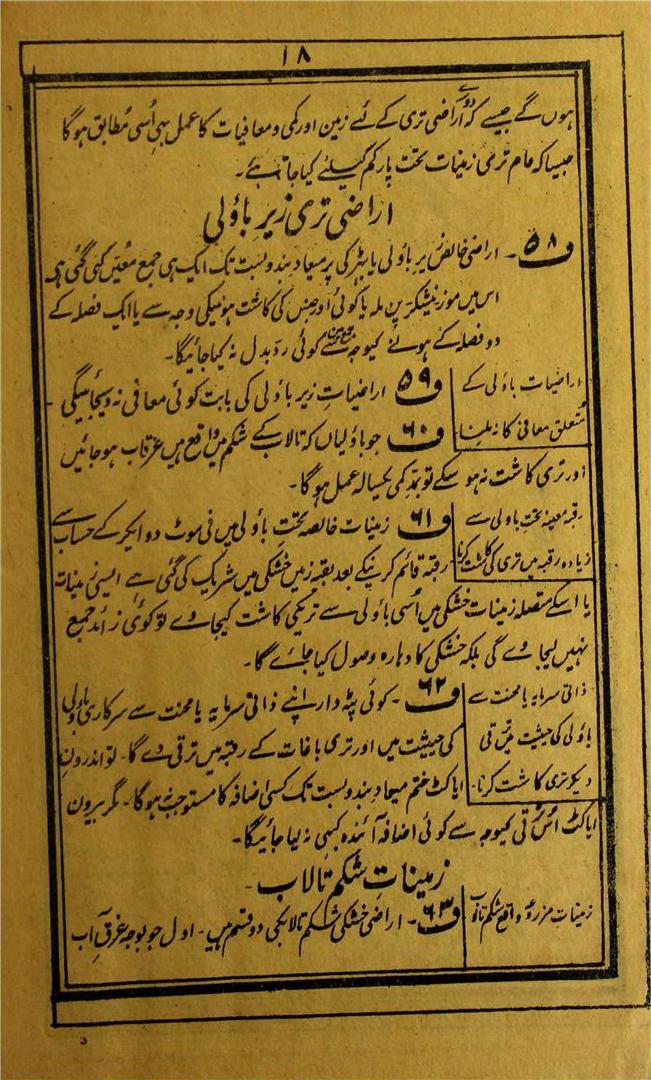 ۱۸
ہوں گے جیسے کہ اراضی تری کے لئے زمین اور کمی و معافیات کا عمل بھی اُسی مُطابق ہوگا
جیساکہ عام تری زمینات تحت پارکم کیلئے کیا جاتا ہے۔
اراضی تری زیر باؤلی
ف۵۸۔ اراضی خالص زیر باؤلی یا بہڑکی پر میعاد بندوبست تک ایک ہی جمع معین کی گئی ہی
اس میں موز نیشکر پن ملہ یا کوئی اور جنس کی کاشت ہونیکی وجہ سے یا ایک فصلہ کے
دو فصلہ کے ہونے کیوجہ سے کوئی ردّ بدل نہ کیا جائیگا۔
اراضیات باؤلی کے
متعلق معافی کا نہ ملنا۔
ف۵۹ اراضیاتِ زیر باؤلی کی بابت کوئی معافی نہ دیجائیگی۔
ف۶۰ جو باؤلیاں کہ تالاب کے شکم میں واقع ہیں غرقاب ہو جائیں
اور تری کاشت نہ ہو سکے تو بمد کمی یکسالہ عمل ہوگا۔
رقبہ معینہ تحت باولی سے
زیادہ رقبہ میں تری کی کاشت کرنا
ف۶۱ زمینات خالصہ تحتِ باؤلی میں فی موٹ دو ایکر کے حساب سے
رقبہ قائم کرنیکے بعد بقیہ زمین خشکی میں شریک کی گئی ہے ایسی زمینات
یا اسکے متصلہ زمینات خشکی میں اُسی باؤلی سے تریکی کاشت کیجاوے تو کوئی زائد جمع
نہیں لیجاوے گی بلکہ خشکی کا دہارہ وصول کیا جاۓ گا۔
ذاتی سرمایہ یا محنت سے
باؤلی کی حیثیت میں ترقی
دیکر تری کاشت کرنا۔
ف۶۲۔ کوئی پٹہ دار اپنے ذاتی سرمایہ یا محنت سے سرکاری باؤلی
کی حیثیت میں اور تری باغات کے رقبہ میں ترقی دے گا۔ تو اندرونِ
ایاکٹ ختم میعاد بندوبست تک کسی اضافہ کا مستوجب نہ ہوگا۔ مگر بیرون
ایاکٹ اُس ترقی کیوجہ سے کوئی اضافہ آئندہ کبھی نہ لیا جائیگا۔
زمیناتِ شکم تالاب۔
زمینات مزروعہ واقع شکم تالاب
ف۶۳۔ اراضی خشکی شکم تالابکی دو قسم ہیں۔ اول جو بوجہ غرقِ آب